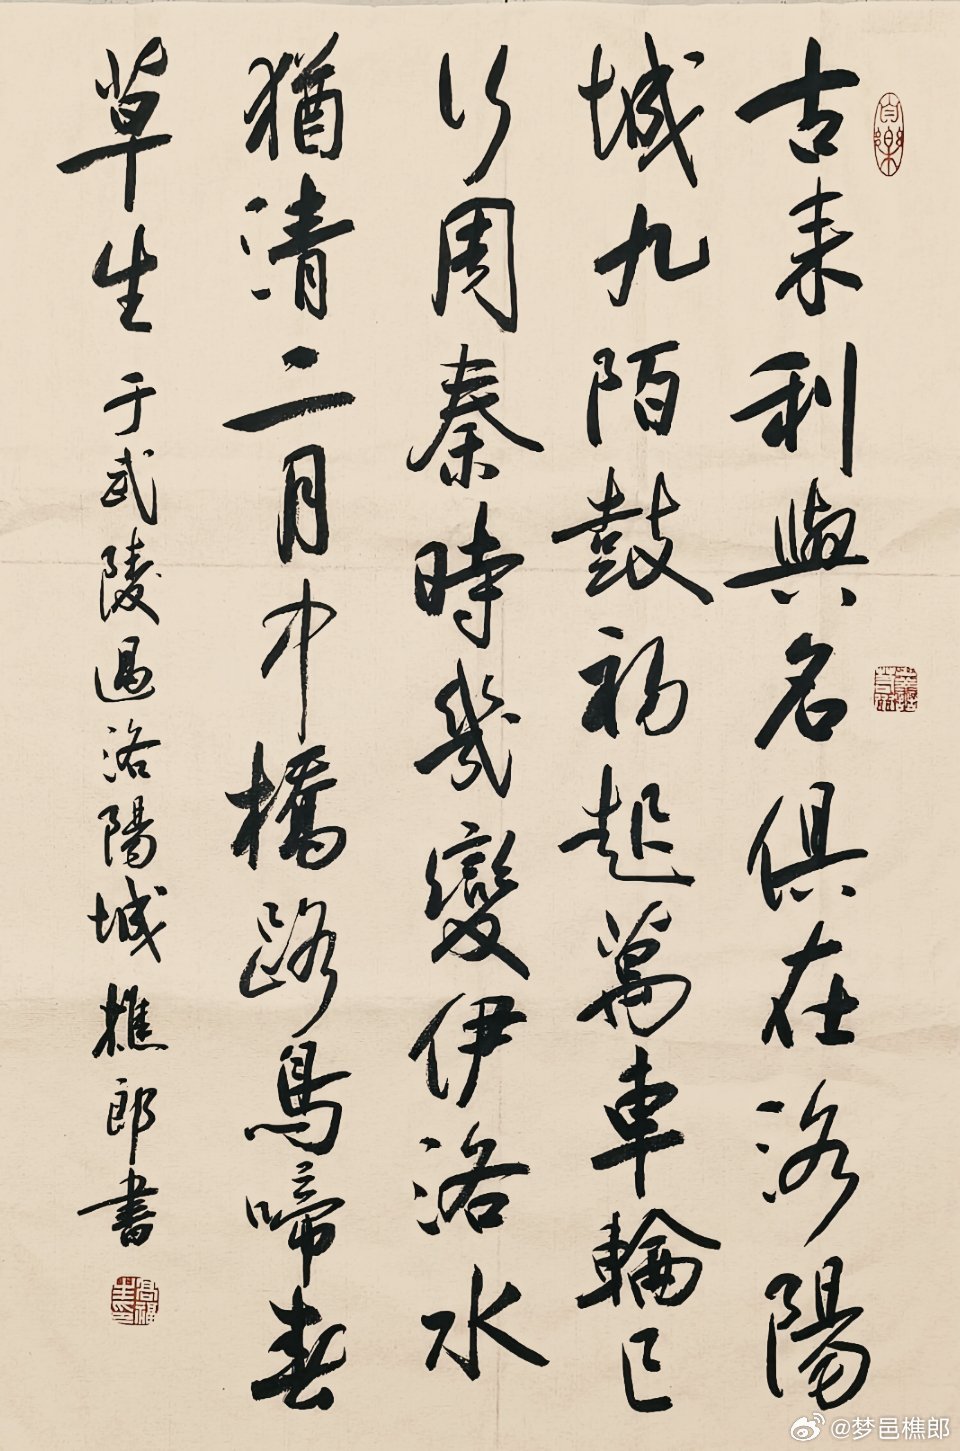 古来利與名俱在洛陽
城九陌鼓初起萬車輪已
行周秦時幾變伊洛水
猶清二月中橋路鳥啼春
草生 于武陵過洛陽城 樵郎書
@梦邑樵郎